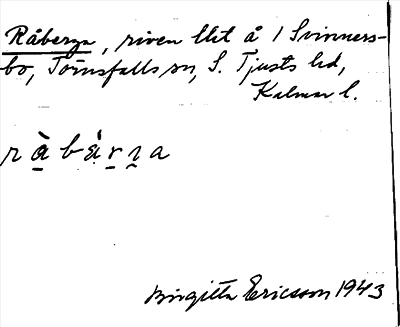 Råberga, riven llit å 1 Svinners-
bo, Törnsfalls sn, S. Tjusts hd,
Kalmar l.
Birgitta Ericsson 1943